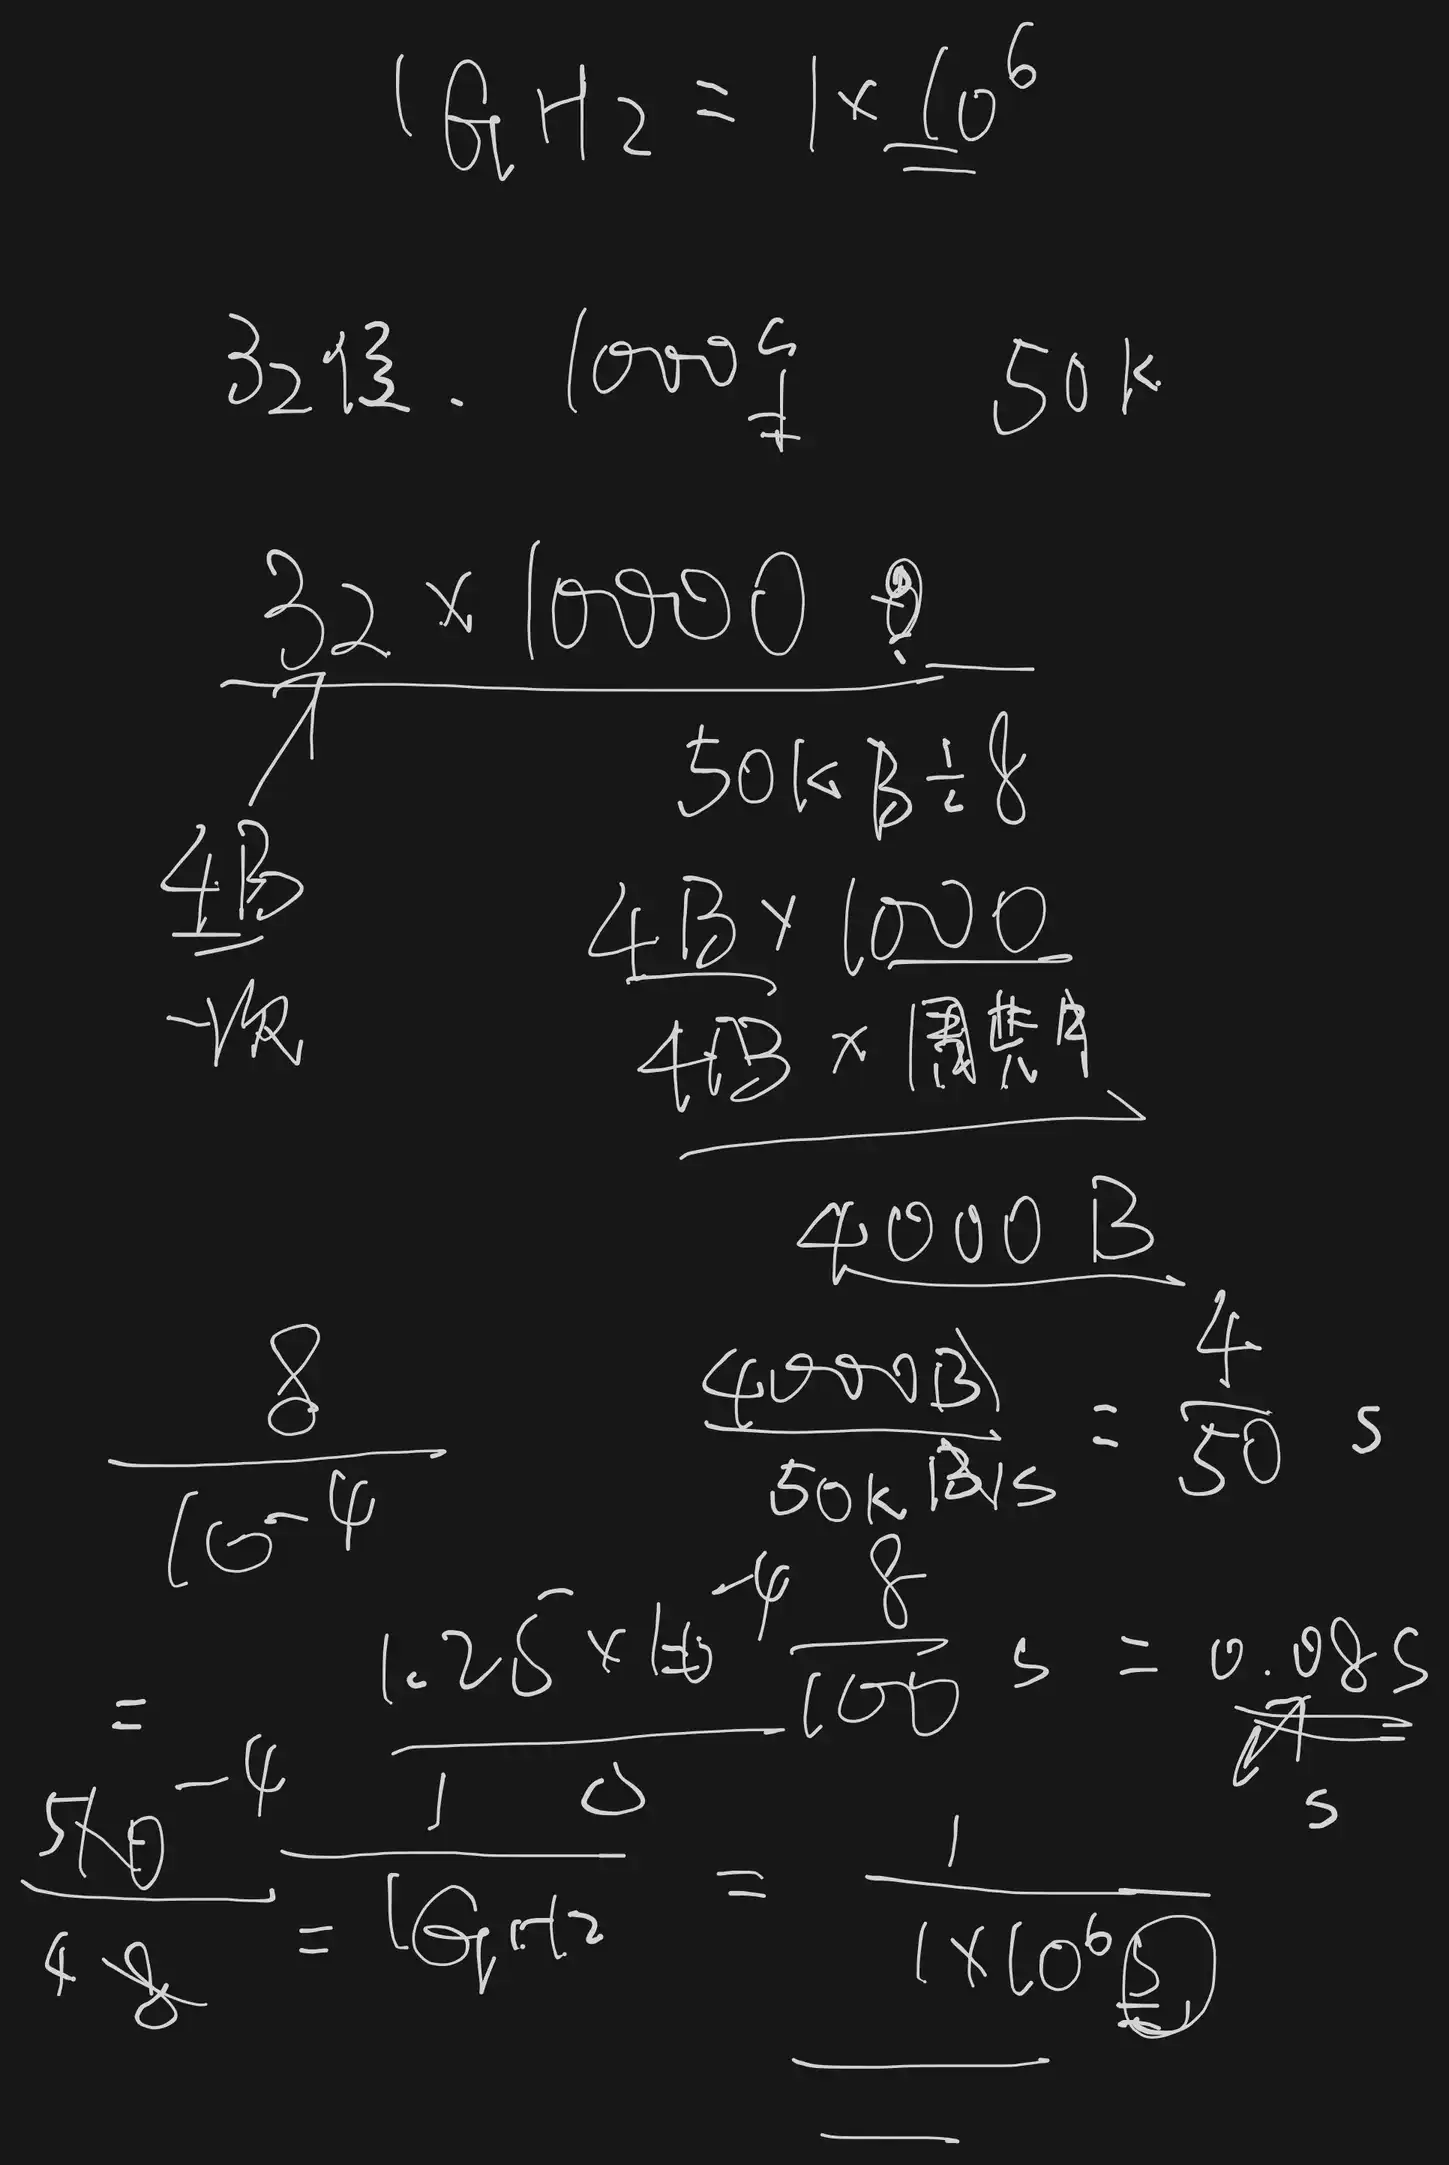 1GHz = 1×10⁶
32位. 1000 50k
32 × 10000
50kB÷8
4B
4B × 1000
一次
4B × 周期
4000B
4000B / 50kB/s = 4/50 s
8 / 10⁻⁴
1.25 × 10⁻⁴
8/100 s = 0.08s
s
=
5×10⁻⁴ / 48 = 1 0 / 1GHz = 1 / 1×10⁶ s